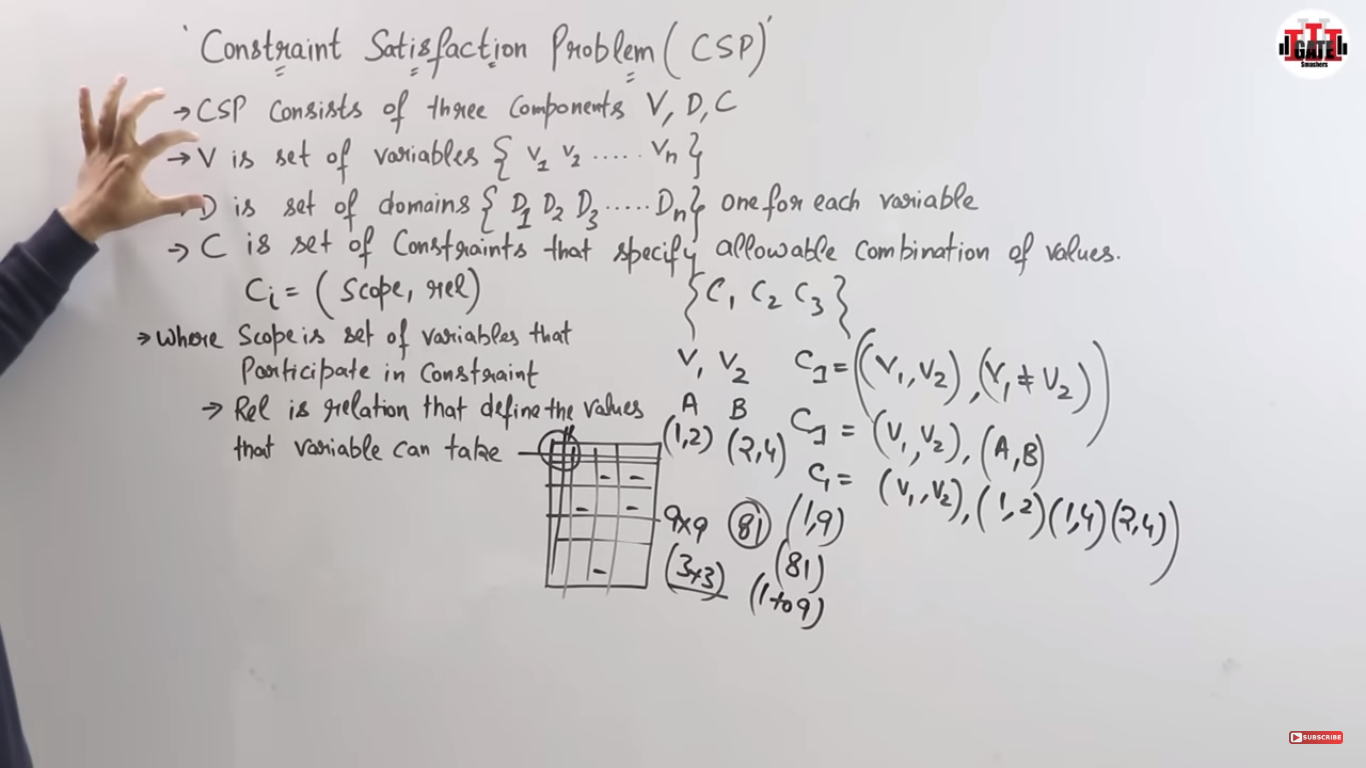 'Constraint Satisfaction Problem (CSP)'
→ CSP Consists of three Components V, D, C
→ V is set of variables { V1 V2 ..... Vn }
D is set of domains { D1 D2 D3 ..... Dn } one for each variable
→ C is set of Constraints that specify allowable combination of values.
Ci = ( Scope, rel)
{ C1 C2 C3 }
→ Where Scope is set of variables that
Participate in Constraint
→ Rel is relation that define the values
that variable can take
V1 V2
A B
(1,2) (2,4)
C1 = ((V1, V2), (V1 ≠ V2))
C1 = (V1, V2), (A, B)
C1 = (V1, V2), (1,2) (1,4) (2,4))
9×9 81 (1,9)
(3×3) (81)
(1 to 9)
GATE
Smashers
SUBSCRIBE